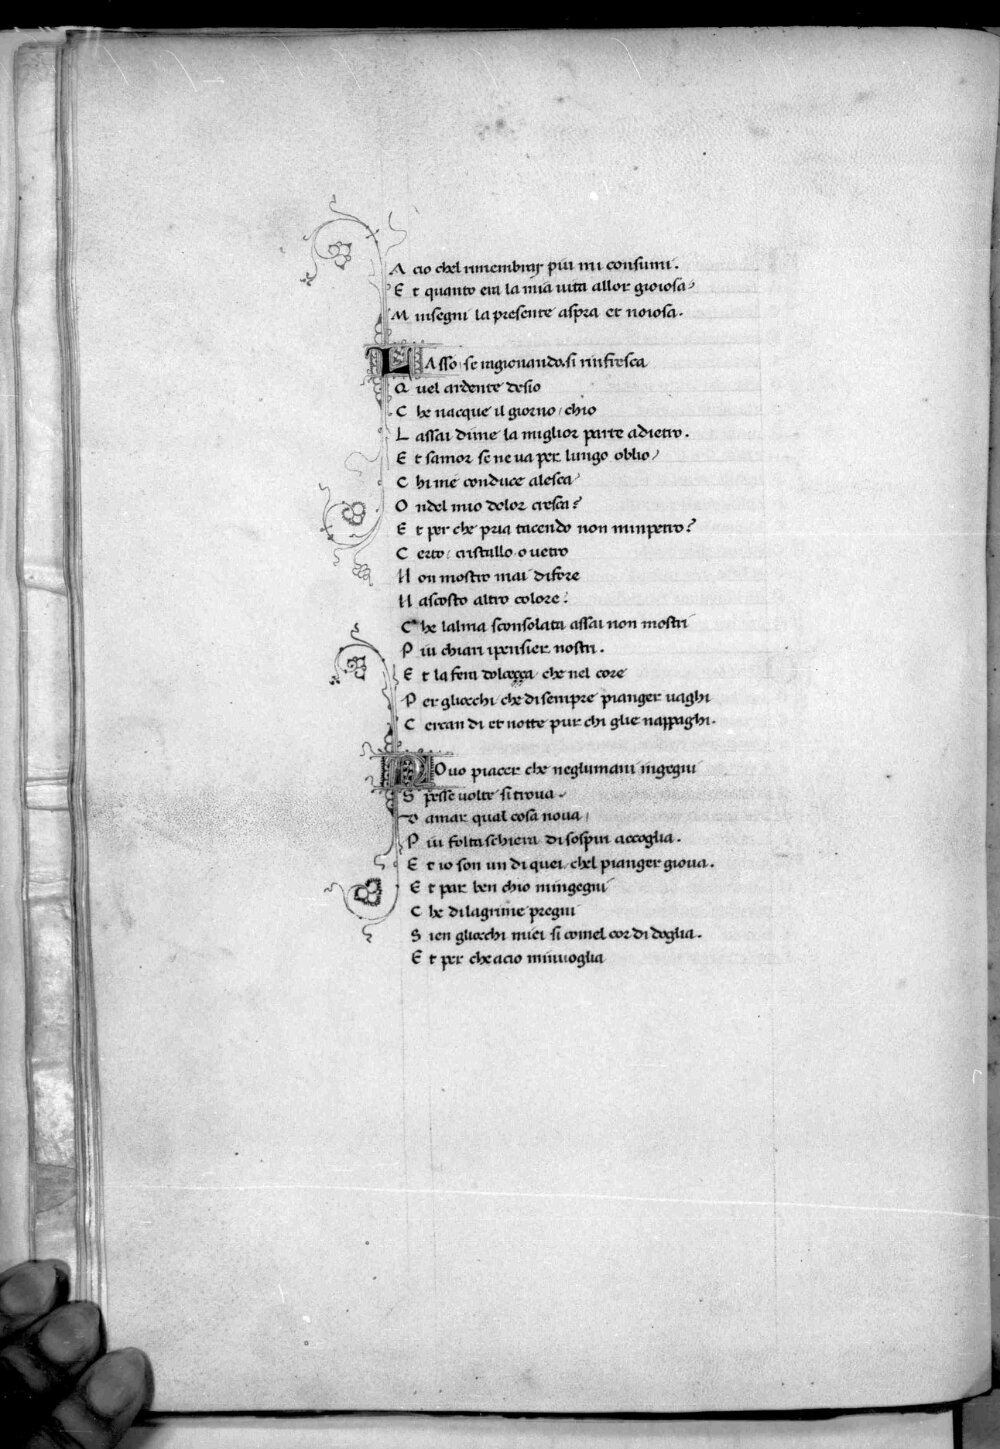 A cio chel rimembrar piu mi consumi.
E t quanto era la mia uita allor gioiosa
M insegni la presente aspra et noiosa.
LAsso se ragionando si rinfresca
Q uel ardente desio
C he nacque il giorno chio
L assai dime la miglior parte adietro.
E t samor se ne ua per lungo oblio
C hi me conduce alesca
O ndel mio dolor cresca?
E t per che pria tacendo non minpetro?
C erto cristallo o uetro
N on mostro mai difore
N ascosto altro colore:
C he lalma sconsolata assai non mostri
P iu chiari ipensier nostri.
E t la fera dolcezza che nel core
P er gliocchi che disempre pianger uaghi
C ercan di et notte pur chi glie nappaghi.
NOuo piacer che neglumani ingegni
S pesse uolte si troua
D amar qual cosa noua
P iu folta schiera di sospiri accoglia.
E t io son un di quei chel pianger gioua.
E t par ben chio mingegni
C he di lagrime pregni
S ien gliocchi miei si comel cor di doglia.
E t per che acio minuoglia